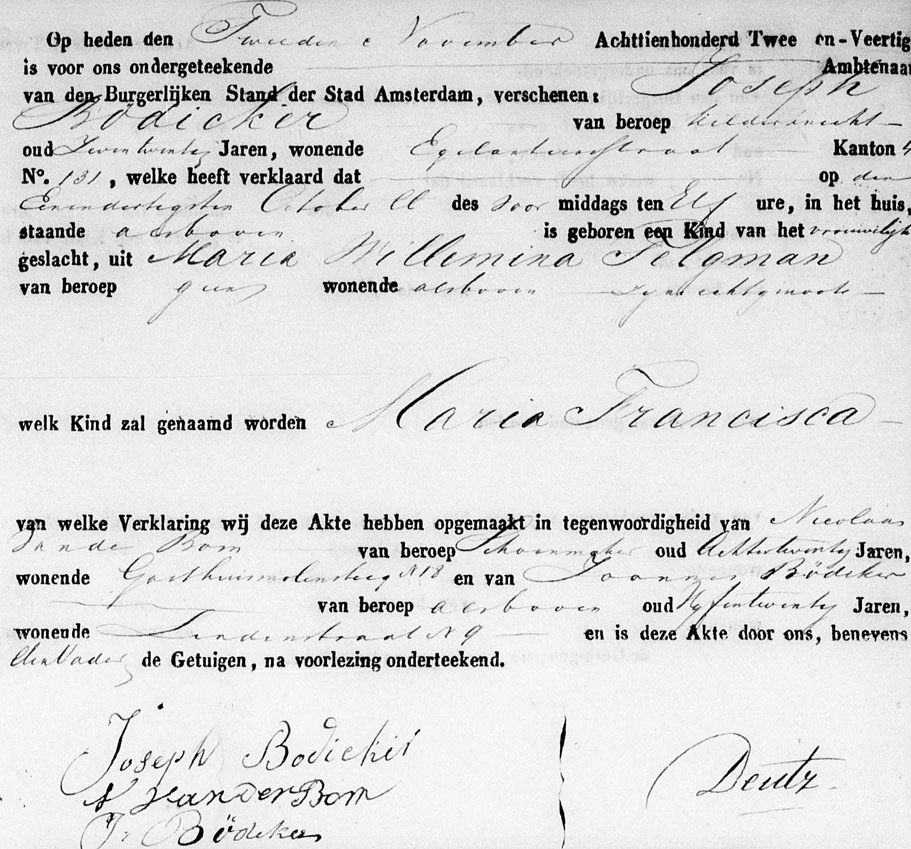 Op heden den Tweeden November Achttienhonderd Twee en-Veertig
is voor ons ondergeteekende Ambtenaar
van den Burgerlijken Stand der Stad Amsterdam, verschenen: Joseph
Bödicker van beroep
oud Jaren, wonende Egelantierstraat Kanton 4
N°. 131, welke heeft verklaard dat op den
Eenendertigsten October ll des voor middags ten Elf ure, in het huis,
staande alsboven is geboren een Kind van het vrouwelijk
geslacht, uit Maria Willemina Telgman
van beroep geen wonende alsboven zijne echtgenoote
welk Kind zal genaamd worden Maria Francisca
van welke Verklaring wij deze Akte hebben opgemaakt in tegenwoordigheid van Nicolaas
van der Bom van beroep Schoenmaker oud Achtentwintig Jaren,
wonende Gasthuismolensteeg N 18 en van Joannes Bödeker
van beroep alsboven oud Vyfentwintig Jaren,
wonende Lindenstraat N 9 en is deze Akte door ons, benevens
den Vader de Getuigen, na voorlezing onderteekend.
Joseph Bodicker
N van Der Bom
Jr Bödeker
Deutz